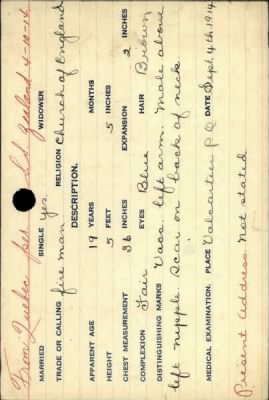 From: Quebec per S.S. Zeeland 4-10-14
MARRIED SINGLE yes WIDOWER
TRADE OR CALLING fire man RELIGION Church of England
DESCRIPTION.
APPARENT AGE 19 YEARS MONTHS
HEIGHT 5 FEET 5 INCHES
CHEST MEASUREMENT 36 INCHES EXPANSION 2 INCHES
COMPLEXION Fair EYES Blue HAIR Brown
DISTINGUISHING MARKS Vacc. left arm. Mole above
left nipple. Scar on back of neck
MEDICAL EXAMINATION. PLACE Valcartier P.Q DATE Sept. 4th 1914
Present Address. Not stated